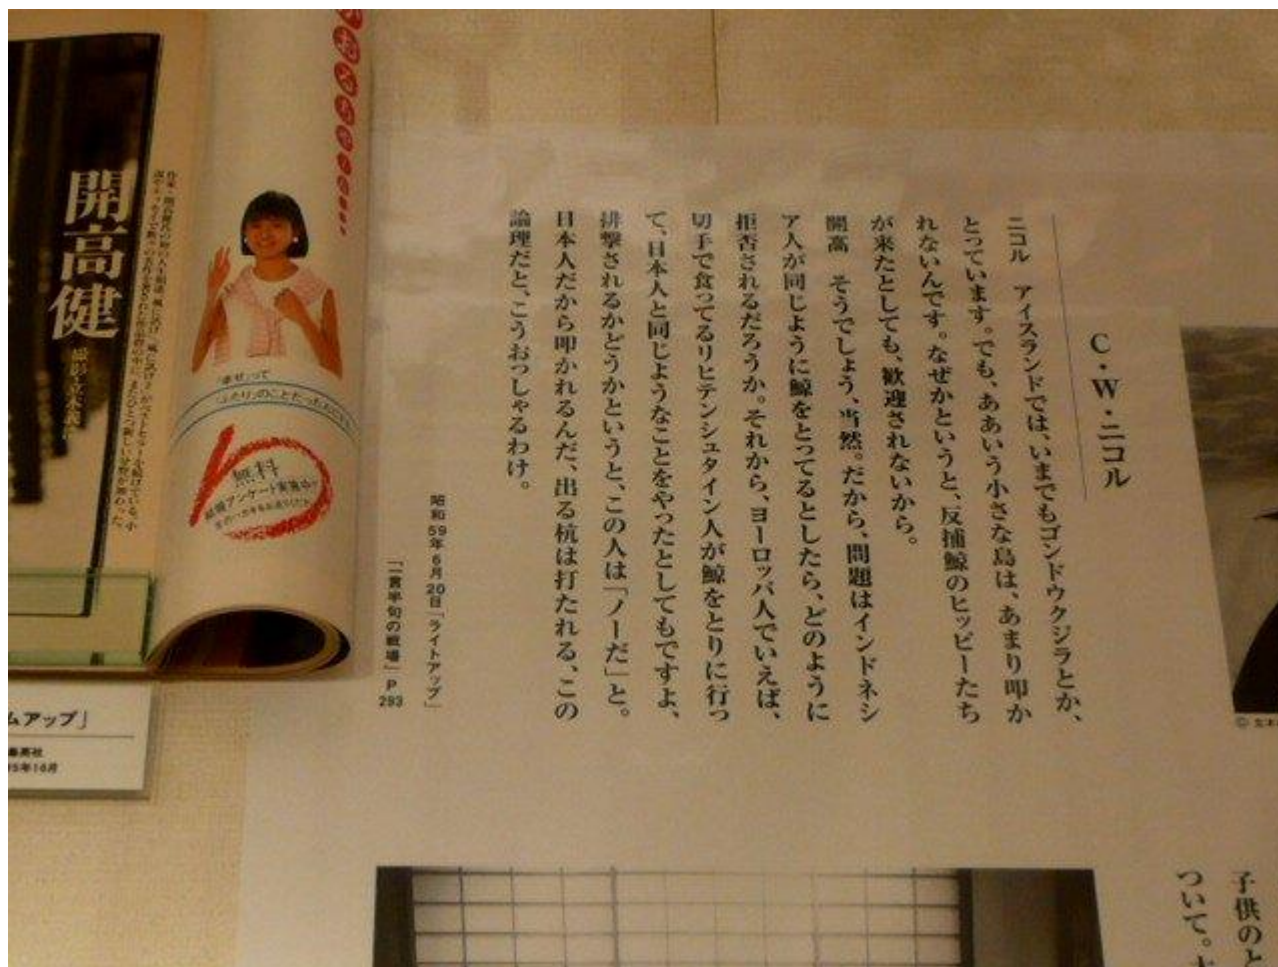 C・W・ニコル
ニコル　アイスランドでは、いまでもゴンドウクジラとか、
とっています。でも、ああいう小さな島は、あまり叩か
れないんです。なぜかというと、反捕鯨のヒッピーたち
が来たとしても、歓迎されないから。
開高　そうでしょう、当然。だから、問題はインドネシ
ア人が同じように鯨をとってるとしたら、どのように
拒否されるだろうか。それから、ヨーロッパ人でいえば、
切手で食ってるリヒテンシュタイン人が鯨をとりに行っ
て、日本人と同じようなことをやったとしてもですよ、
排撃されるかどうかというと、この人は「ノーだ」と。
日本人だから叩かれるんだ、出る杭は打たれる、この
論理だと、こうおっしゃるわけ。
昭和59年6月20日「ライトアップ」
「一言半句の戦場」P293
開高健
「幸せ」って
無料
結婚アンケート実施中
ムアップ」
集英社
5年10月
子供のと
ついて。